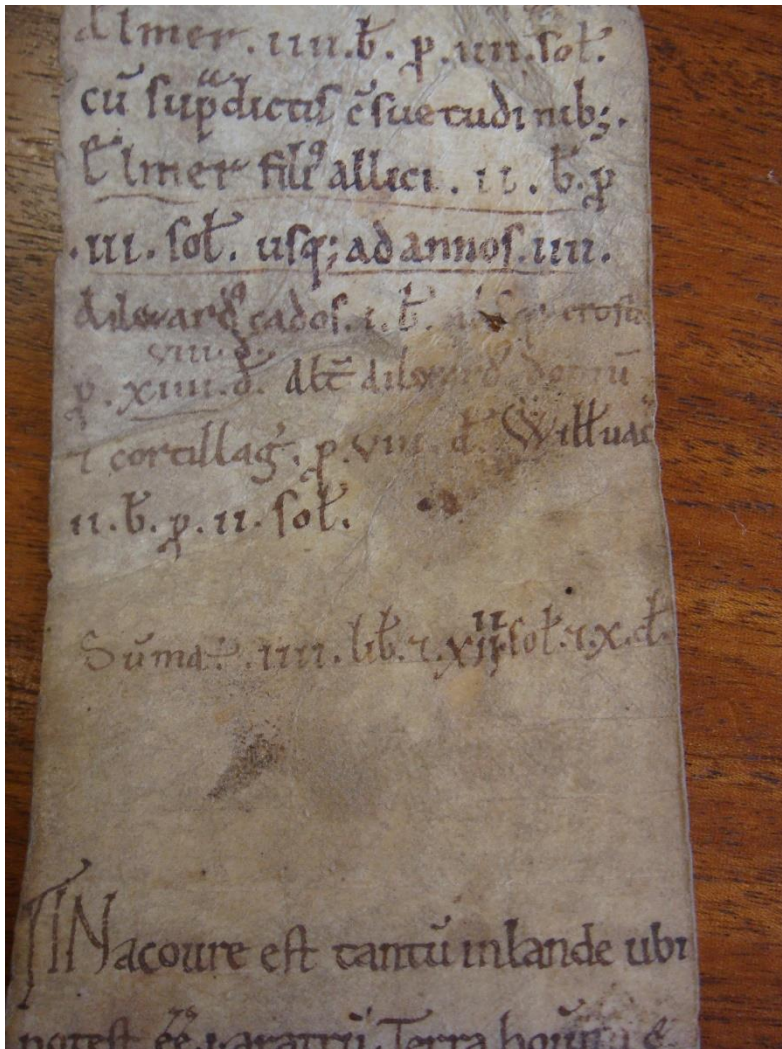 Almer . iiii . b̄ . p̱ . iiii . sol̄ .
cū sup̱ᵃdictis c̄suetudinib; .
Elmer filiꝰ allici . ii . b̄ . p̱
. iii . sol̄ . usq; ad annos . iiii .
Ailwardꝰ cados . i . b̄ .
viii . d̵ .
p̱ . xiiii . d̵ . Alt̄ Ailwardꝰ domū
⁊ cortillaḡ . p̱ . viii . d̵ . Will̄
ii . b̄ . p̱ . ii . sol̄ .
ii
Sūma . iiii . lib̄ . ⁊ . xii . sol̄ . ⁊ . x . d̵ .
IN acoure est tantū inlande ubi
potest ēē . i . aratrū . Terra